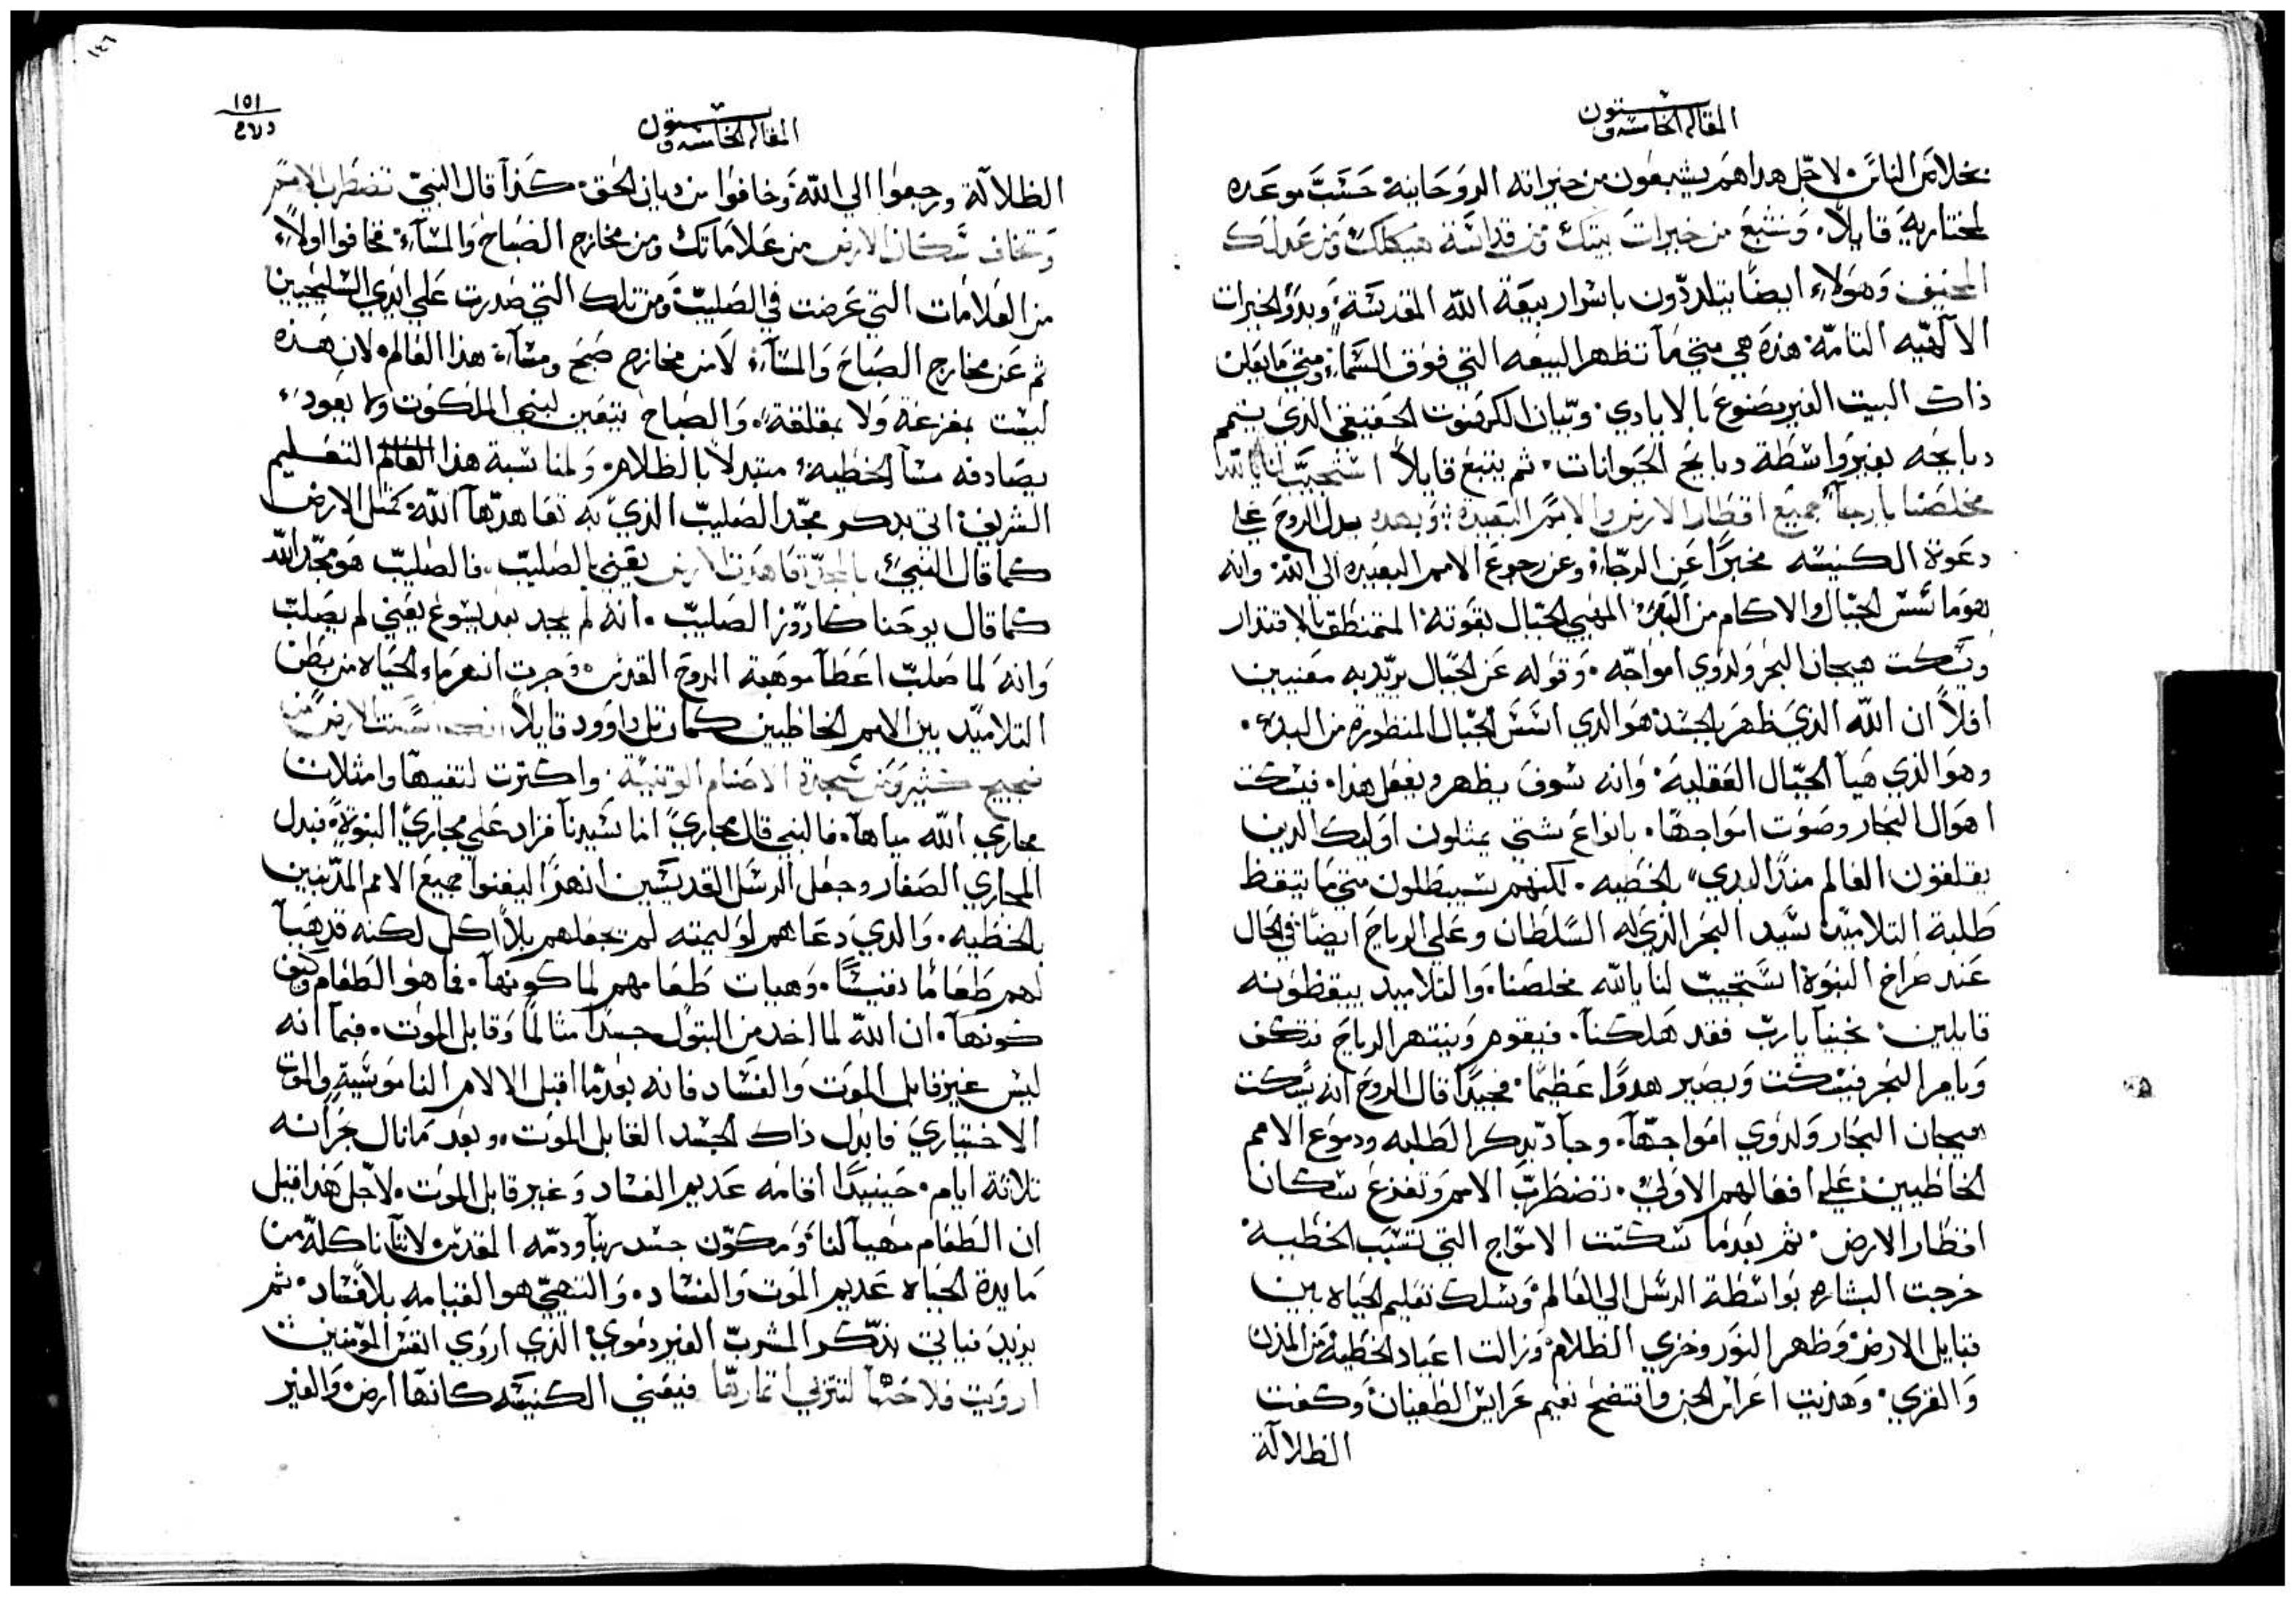 المقاله الخامسه وستون
بخلاص الناس. لاجل هذا هم يشبعون من خيراته الروحانية حسب موعده
لمختاريه قايلاً. ونشبع من خيرات بيتك من قداسة هيكلك ومن عدلك
المخيف وهولاء ايضاً يتلددون باسرار بيعة الله المقدسة. وبدو الخيرات
الالهيه التامه. هذه هي متي ما تظهر البيعه التي فوق السماء. ومتي ما يعلن
ذاك البيت الغير مصنوع بالايادي. وبيان الكهنوت الحقيقي الذي يتمم
دبايحه بغير واسطة دبايح الحيوانات. ثم يتبع قايلاً استجيب لنا يا الله
مخلصنا يا رجا جميع اقطار الارض والامم البعيده. وبهده يدل الروح علي
دعوة الكنيسه مخبراً عن الرجاء. وعن رجوع الامم البعيده الي الله. وانه
هو ماسس الجبال والاكام من البدء. المهيي الجبال بقوته المتمنطق بالاقتدار
ويسكت هيجان البحر ولدوي امواجه. وقوله عن الجبال يريد به معنيين
اولاً ان الله الذي ظهر بالجسد هو الدي اسس الجبال المنظورة من البدء.
وهو الذي هيا الجبال العقلية. وانه سوف يظهر ويفعل هذا. فيسكت
اهوال البحار وصوت امواجها. بانواع شتي يمثلون اوليك الدين
يقلقون العالم منذ البدي بالخطيه. لكنهم سيبطلون متي ما تيقظ
طلبة التلاميد سيد البحر الذي له السلطان وعلي الرياح ايضاً في الحال
عند صراخ النبوة استجيب لنا يا الله مخلصنا. والتلاميد ييقظونه
قايلين. نجينا يا رب فقد هلكنا. فيقوم وينتهر الرياح فتكف
ويامر البحر فيسكت ويصير هدواً عظيماً. فجيداً قال الروح انه يسكت
هيجان البحار ولدوي امواجها. وجا يدكر الطلبه ودموع الامم
الخاطيين علي افعالهم الاولي. تضطرب الامم وتفزع سكان
اقطار الارض. ثم بعدما سكتت الامواج التي تسبب الخطيه
خرجت البشاره بواسطة الرسل الي العالم وسلك تعليم الحياه بين
قبايل الارض وظهر النور وخزي الظلام وزالت اعياد الخطيه من المدن
والقري. وهذيت اعراس الجن وافتضح نعيم عرايس الطغيان. وكفت
الظلالة
١٤٦
١٥١
المقاله الخامسه وستون
الظلالة ورجعوا الي الله وخافوا من ديان الحق. كذا قال النبي تضطرب الامم
وتخاف سكان الارض من علاماتك ومن مخارج الصباح والمساء. فخافوا اولاً
من العلامات التي عرضت في الصليب. ومن تلك التي صدرت علي ايدي السليحيين
ثم عن مخارج الصباح والمساء. لا من مخارج صبح ومساء هذا العالم. لان هذه
ليست بمفزعة ولا بمقلقة. والصباح يتعين لبني الملكوت ولا يعود
يصادفه مسآ الخطية. متبدلاً بالظلام. ولمناسبة هذا التعليم
الشريف. اتي بدكر مجد الصليب الذي به تعاهدها الله. كمثل الارض
كما قال النبي. بالمجد تعاهدت الارض يعني بالصليب. فالصليب هو مجد الله
كما قال يوحنا كاروز الصليب. انه لم يجد بعد يسوع يعني لم يصلب
وانه لما صلب اعطا موهبة الروح القدس. وجرت انهر ماء الحياه من بطن
التلاميد بين الامم الخاطيين كما رتل داوود قايلاً
ضجيج كثير ومن سجدة الاصنام الوثنية. واكثرت لتغنيها وامثلات
مجاري الله مياهاً. فالنبي قال مجاري. انما سيدنا فزاد علي مجاري النبوة. فبدل
المجاري الصغار وجعل الرسل القديسين انهراً ليغنوا جميع الامم المدنبين
بالخطيه. والدي دعاهم لوليمته لم يجعلهم بلا اكل لكنه قد هيا
لهم طعاماً نفيساً. وهيات طعامهم لما كونها. فما هو الطعام وكيف
كونها. ان الله لما اخد من البتول جسداً متالماً وقابل الموت. فبما انه
ليس غير قابل الموت والفساد فانه بعدما اقبل الالام الناموسية والموت
الاختياري فابدل ذاك الجسد القابل الموت. وبعد تمانال جزانه
تلاتة ايام. حينيداً اقامه عديم الفساد وغير قابل الموت. لاجل هذا قيل
ان الطعام مهيا لنا. ومكون جسد ربنا ودمه المقدس. لاننا ناكله من
مايدة الحياه عديم الموت والفساد. والتهيي هو القيامه بلا فساد. ثم
يزيد فياتي بذكر المشرب الغير دموي. الذي اروي انفس المومنين
ارويت فلاحتها لتنزلي اثمارها فيعني الكنيسه كانها ارض والغير